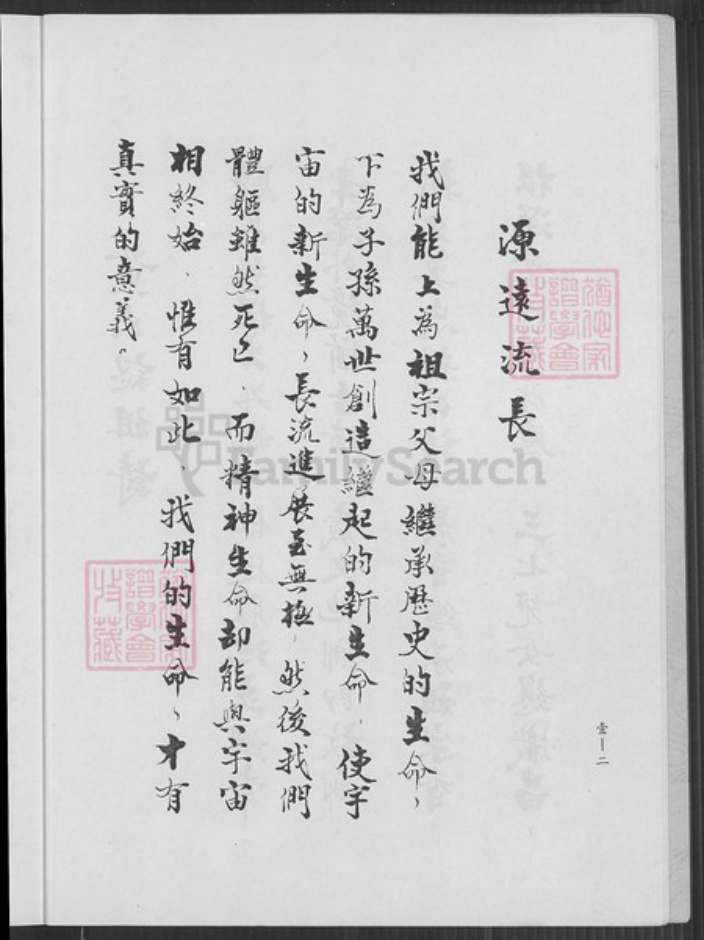 源遠流長
我們能上為祖宗父母繼承歷史的生命，
下為子孫萬世創造繼起的新生命．使宇
宙的新生命，長流進展至無極．然後我們
體軀雖然死亡．而精神生命却能與宇宙
相終始．惟有如此．我們的生命，才有
真實的意義。
壹－二
FamilySearch
譜學會
收藏
譜學會
收藏